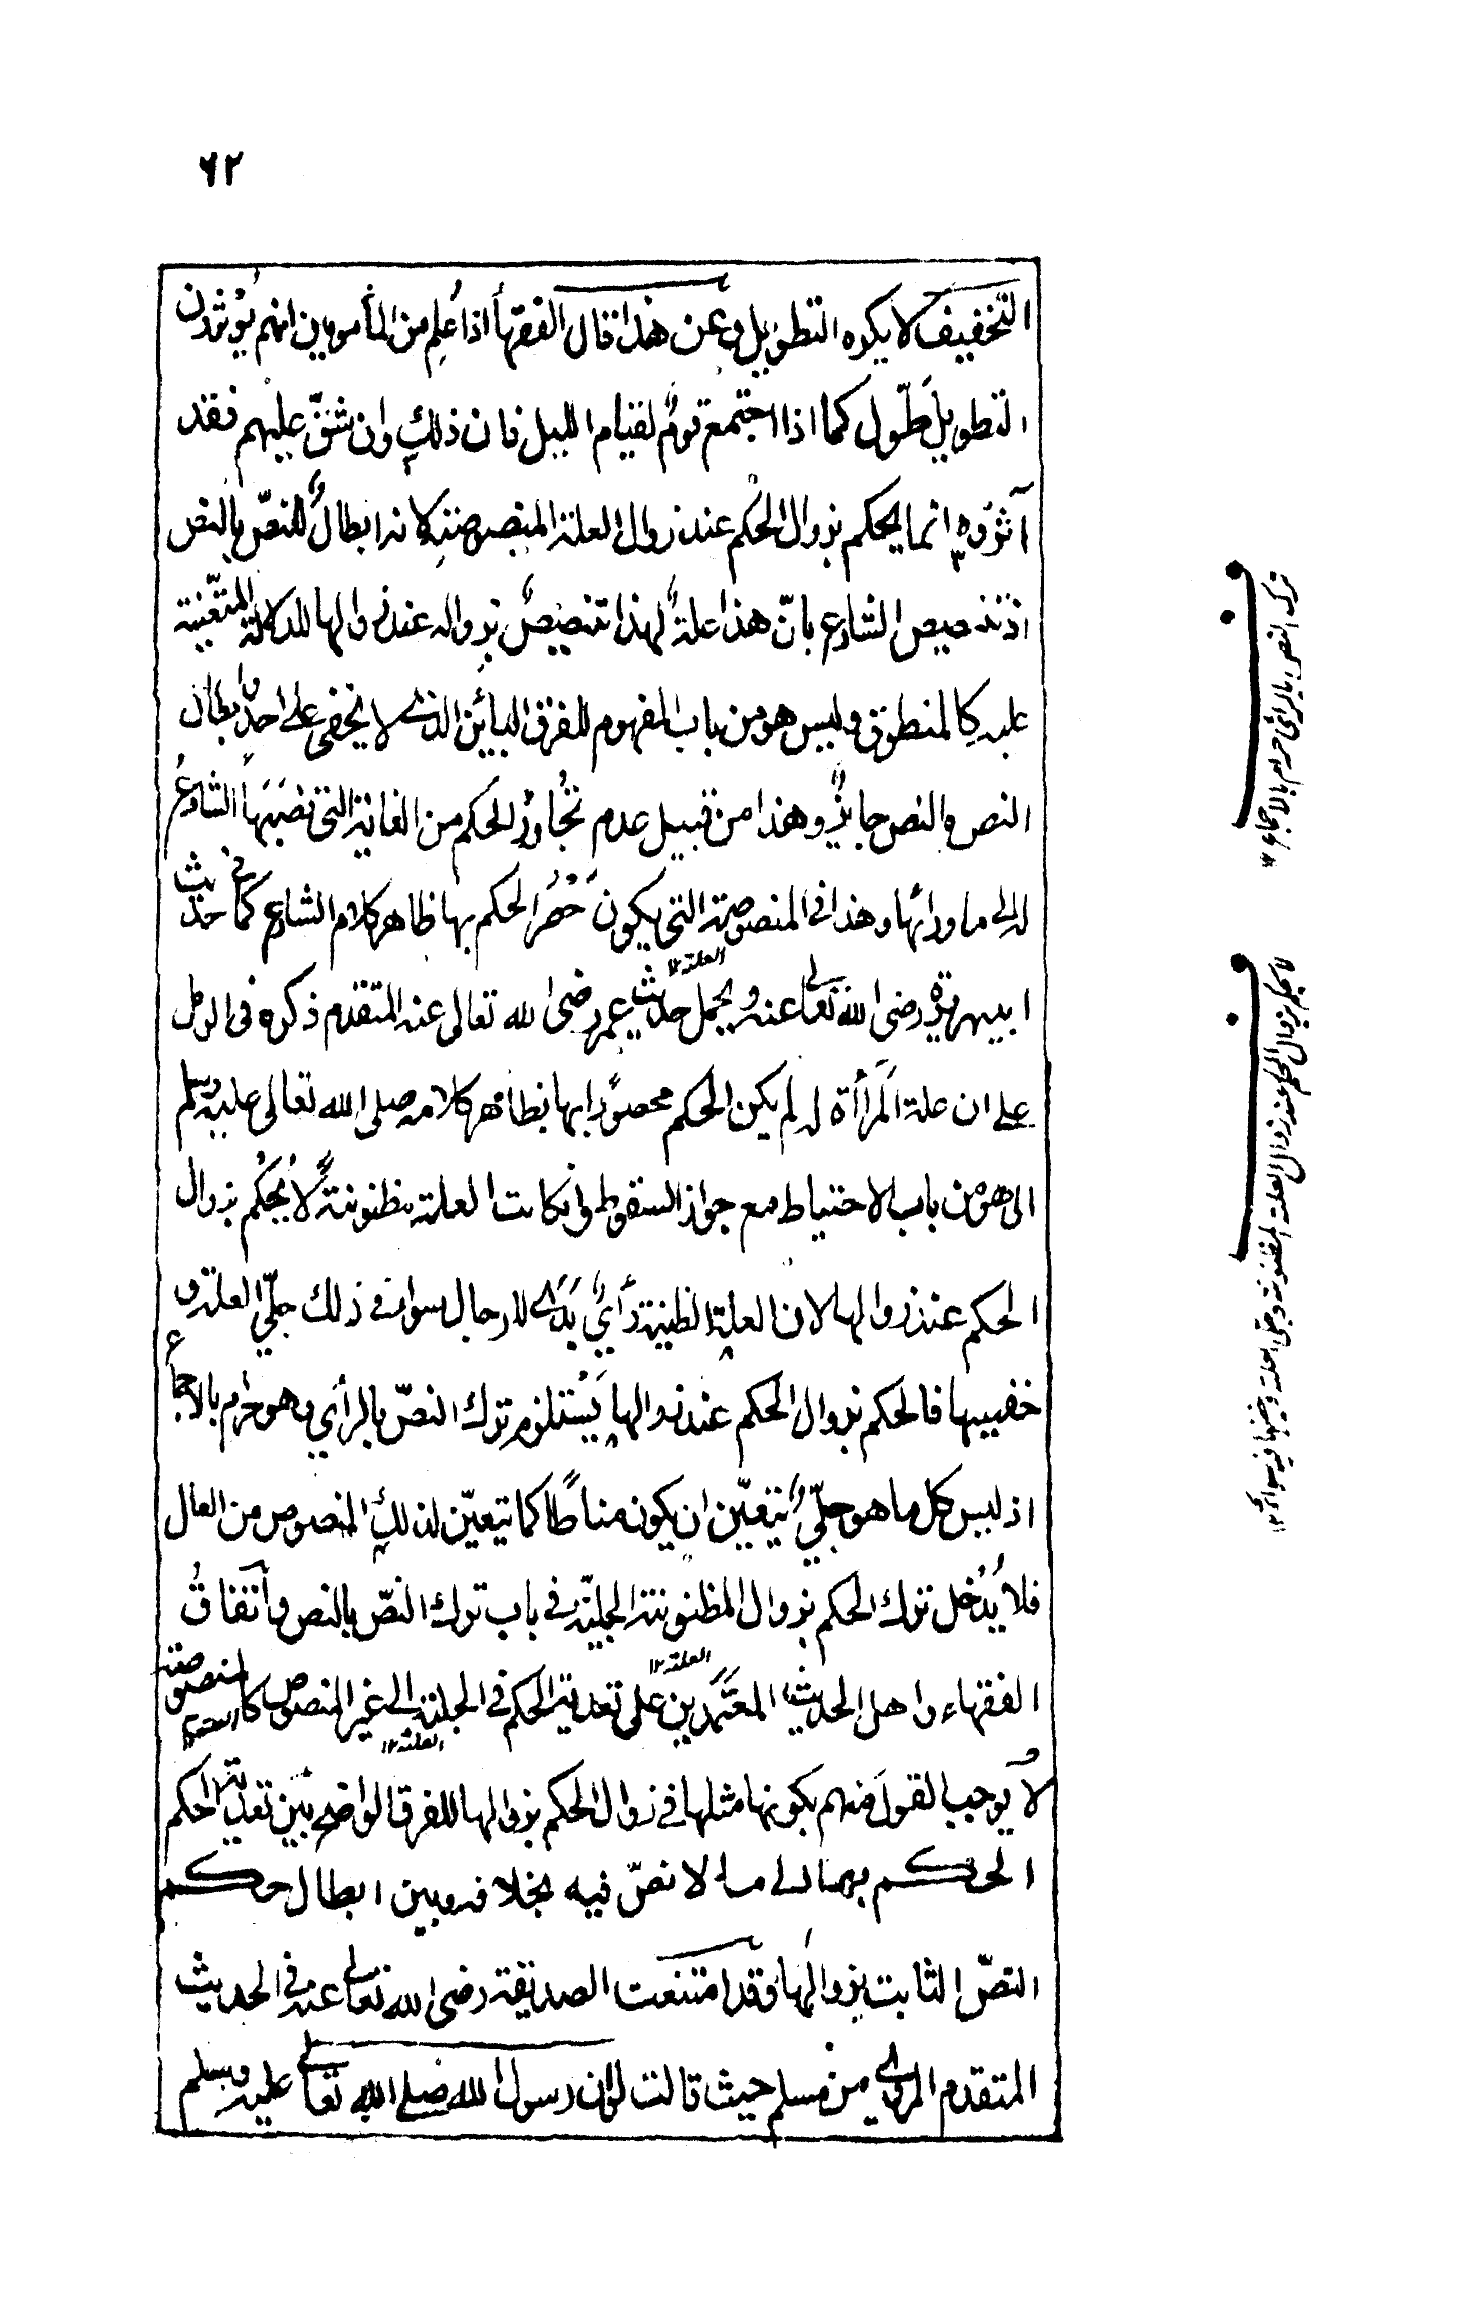 ٦٢
التخفيف لا يكره التطويل وعن هذا قال الفقهاء اذا عُلِم من المأمومين انهم يُوثرون
التطويل طَوّل كما اذا اجتمع قومٌ لقيام الليل فان ذلك وان شقّ عليهم فقد
آثروه انما يحكم بزوال الحكم عند زوال العلة المنصوصة لانه ابطالٌ للنصّ بالنص
اذ تنصيص الشارع بانّ هذا علةٌ لهذا تنصيصٌ بزواله عند زوالها للدلالة المتعينة
عليه كالمنطوق وليس هو من باب المفهوم للفرق البائن الذى لا يخفى على احد وابطال
النص والنص جايزٌ وهذا من قبيل عدم تجاوز الحكم من الغاية التى نصَبَها الشارعُ
له الى ماورائها وهذا فى المنصوصة التى يكون حَصْر الحكم بها ظاهر كلام الشارع كما فى حديث
ابيهريرة رضى الله تعالى عنه ويحمل حديث عمر رضى الله تعالى عنه المتقدم ذكره فى الرمل
العلة ١٢
على ان علة المرأاة له لم يكن الحكم محصورا بها بظاهر كلامه صلى الله تعالى عليه وسلم
الى هو من باب الاحتياط مع جواز السقوط وان كانت العلة مظنونةً لا يُحكم بزوال
الحكم عند زوالها لان العلة الظنية رأيٌ بَدَى للرجال سواء فى ذلك جليّ العلة و
خفيها فالحكم بزوال الحكم عند زوالها يَسْتلزم ترك النصّ بالرأي وهو حرام بالاجماع
اذ ليس كل ما هو جليّ يتعيّن ان يكون مناطًا كما تيعيّن لذلك المنصوص من العلل
فلا يُدْخل ترك الحكم بزوال المظنونة الجلية فى باب ترك النصّ بالنص واتفاقُ
الفقهاء واهل الحديث المعتَمدين على تعدية الحكم فى الجلية الى غير المنصوص كالمنصوصة
العلة ١٢
العلة ١٢
لا يوجب القول منهم بكونها مثلها فى زوال الحكم بزوالها للفرق الواضح بين تعدية الحكم
الحكم بها الى ما لا نصّ فيه بخلافه وبين ابطال حكم
النصّ الثابت بزوالها وقد امتنعت الصديقة رضى الله تعالى عنه فى الحديث
المتقدم المروى من مسلم حيث قالت لو ان رسول الله صلى الله تعالى عليه وسلم
ترك النص بالرأى حرام بالاجماع ١٢
لا يحكم بزوال الحكم عند زوال العلة المظنونة وجلى العلة وخفيها فيه سواء ١٢